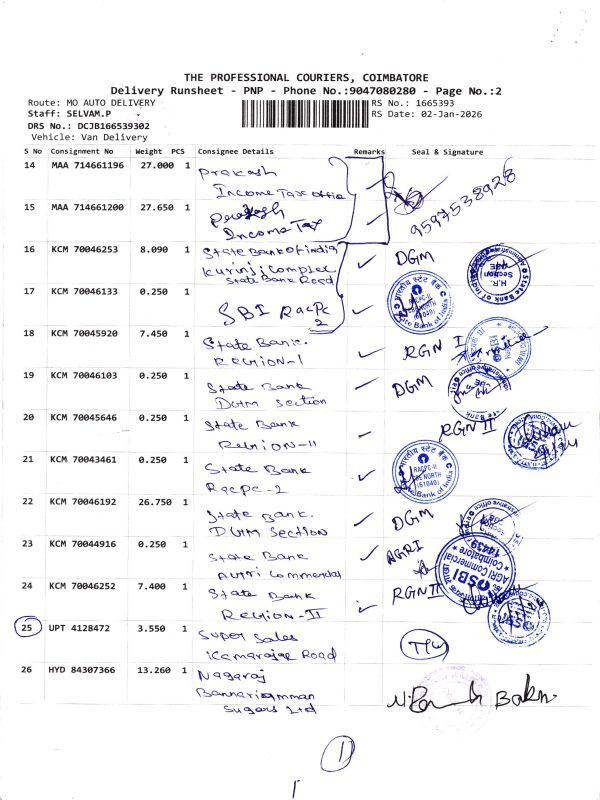 THE PROFESSIONAL COURIERS, COIMBATORE
Delivery Runsheet - PNP - Phone No.:9047080280 - Page No.:2
Route: MO AUTO DELIVERY RS No.: 1665393
Staff: SELVAM.P RS Date: 02-Jan-2026
DRS No.: DCJB166539302
Vehicle: Van Delivery
S No Consignment No Weight PCS Consignee Details Remarks Seal & Signature
14 MAA 714661196 27.000 1 Prakash
Income Tax office
9597538928
15 MAA 714661200 27.650 1 Prakash
Income Tax
16 KCM 70046253 8.090 1 State Bank of india DGM
Kurinji Complex
State Bank Road
H.R. Section
17 KCM 70046133 0.250 1 SBI RACPC
2
RACPC-II
State Bank of India
18 KCM 70045920 7.450 1 State Bank. RGN I
REGION-I
19 KCM 70046103 0.250 1 State Bank DGM
DGM Section
20 KCM 70045646 0.250 1 State Bank RGN II
REGION-II
21 KCM 70043461 0.250 1 State Bank
RACPC-2
RACPC-II
CBE NORTH
(61040)
State Bank of India
22 KCM 70046192 26.750 1 State Bank. DGM
DGM Section
23 KCM 70044916 0.250 1 State Bank AGRI
Agri Commercial
SBI
AGRI Commercial
Coimbatore
14439
24 KCM 70046252 7.400 1 State Bank RGN II
REGION-II
25 UPT 4128472 3.550 1 Super Sales
Kamarajar Road
26 HYD 84307366 13.260 1 Nagaraj
Bannariamman
Sugars Ltd
1
1